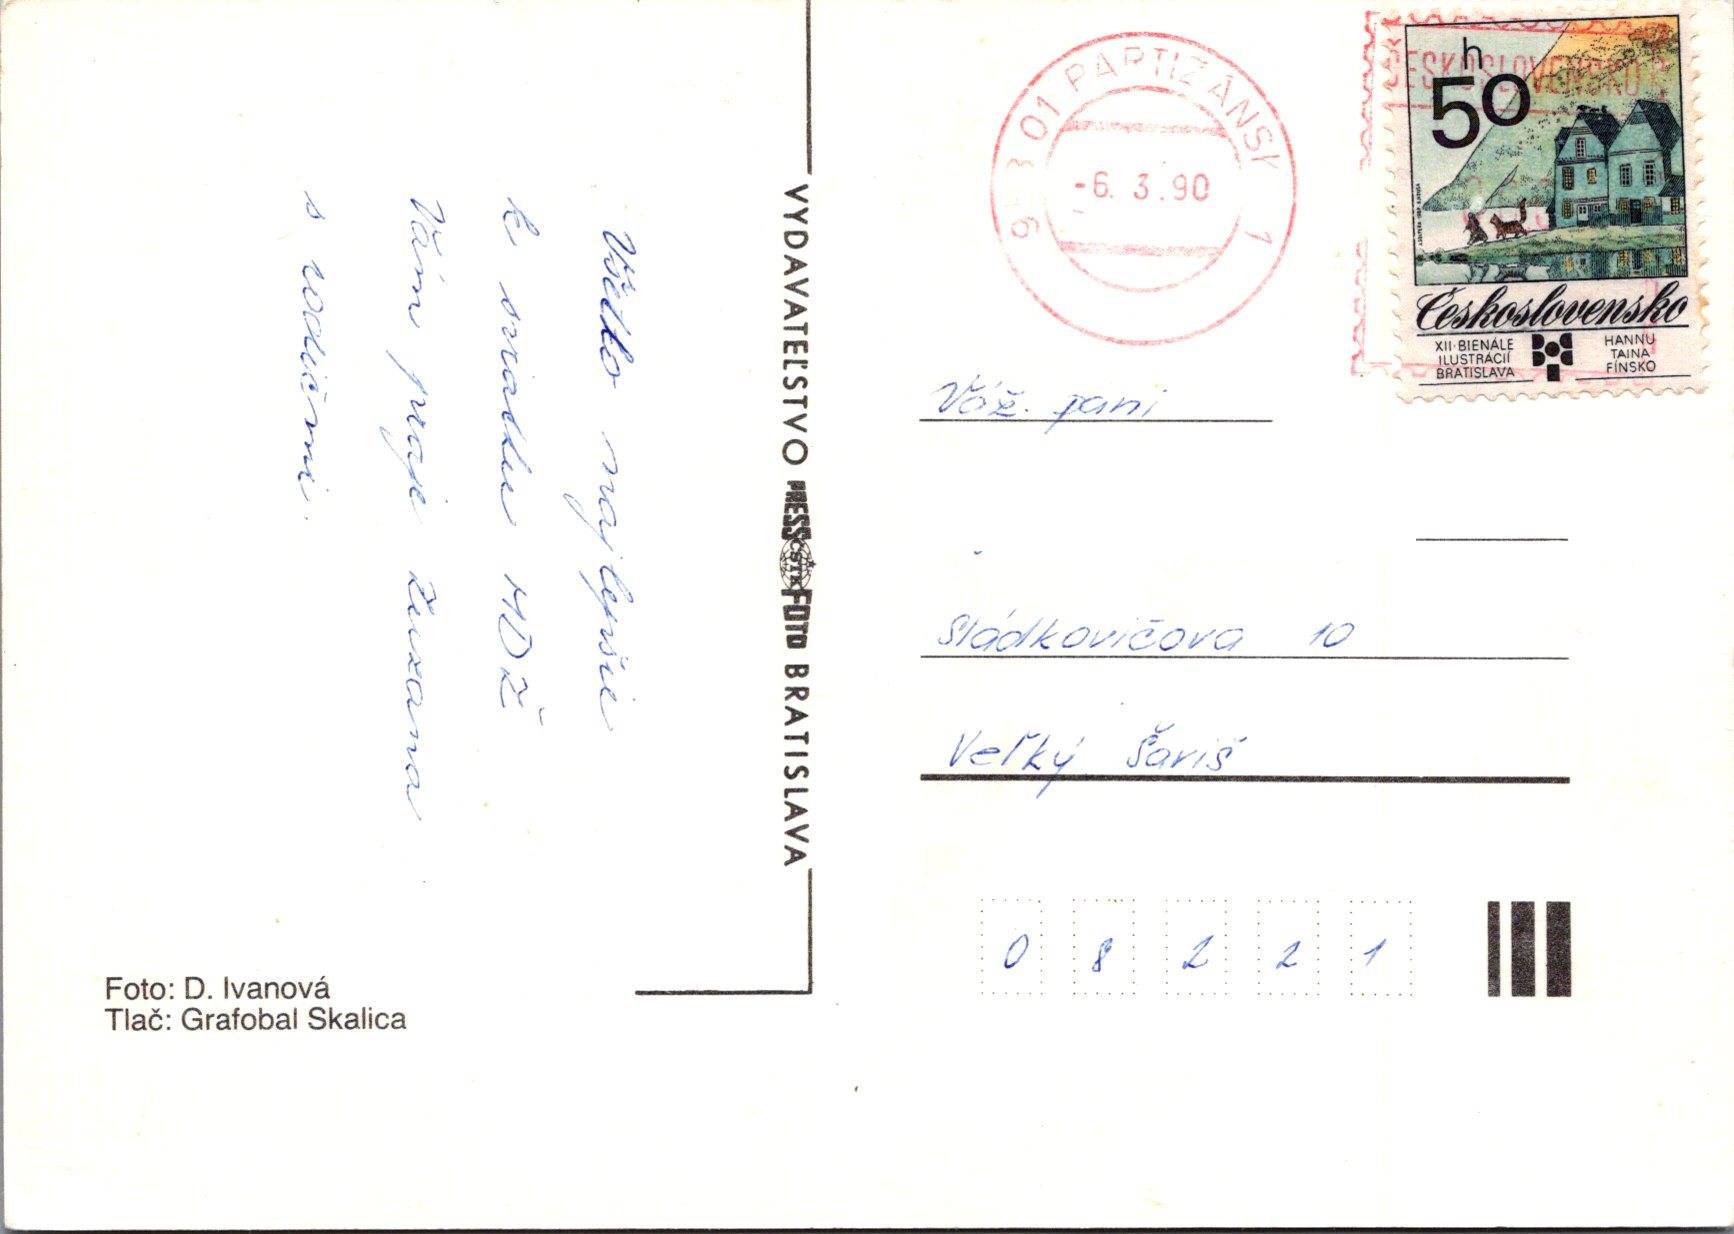 Všetko najlepšie
k sviatku MDŽ
Vám praje Zuzana
s rodičmi.
Foto: D. Ivanová
Tlač: Grafobal Skalica
VYDAVATEĽSTVO PRESSFOTO BRATISLAVA
ČSTK
01 PARTIZÁNSK 1
-6. 3.90
ČESKOSLOVENSKO
h
50
Československo
XII·BIENÁLE
ILUSTRÁCIÍ
BRATISLAVA
HANNU
TAINA
FÍNSKO
Váž. pani
Sládkovičova 10
Veľký Šariš
08221